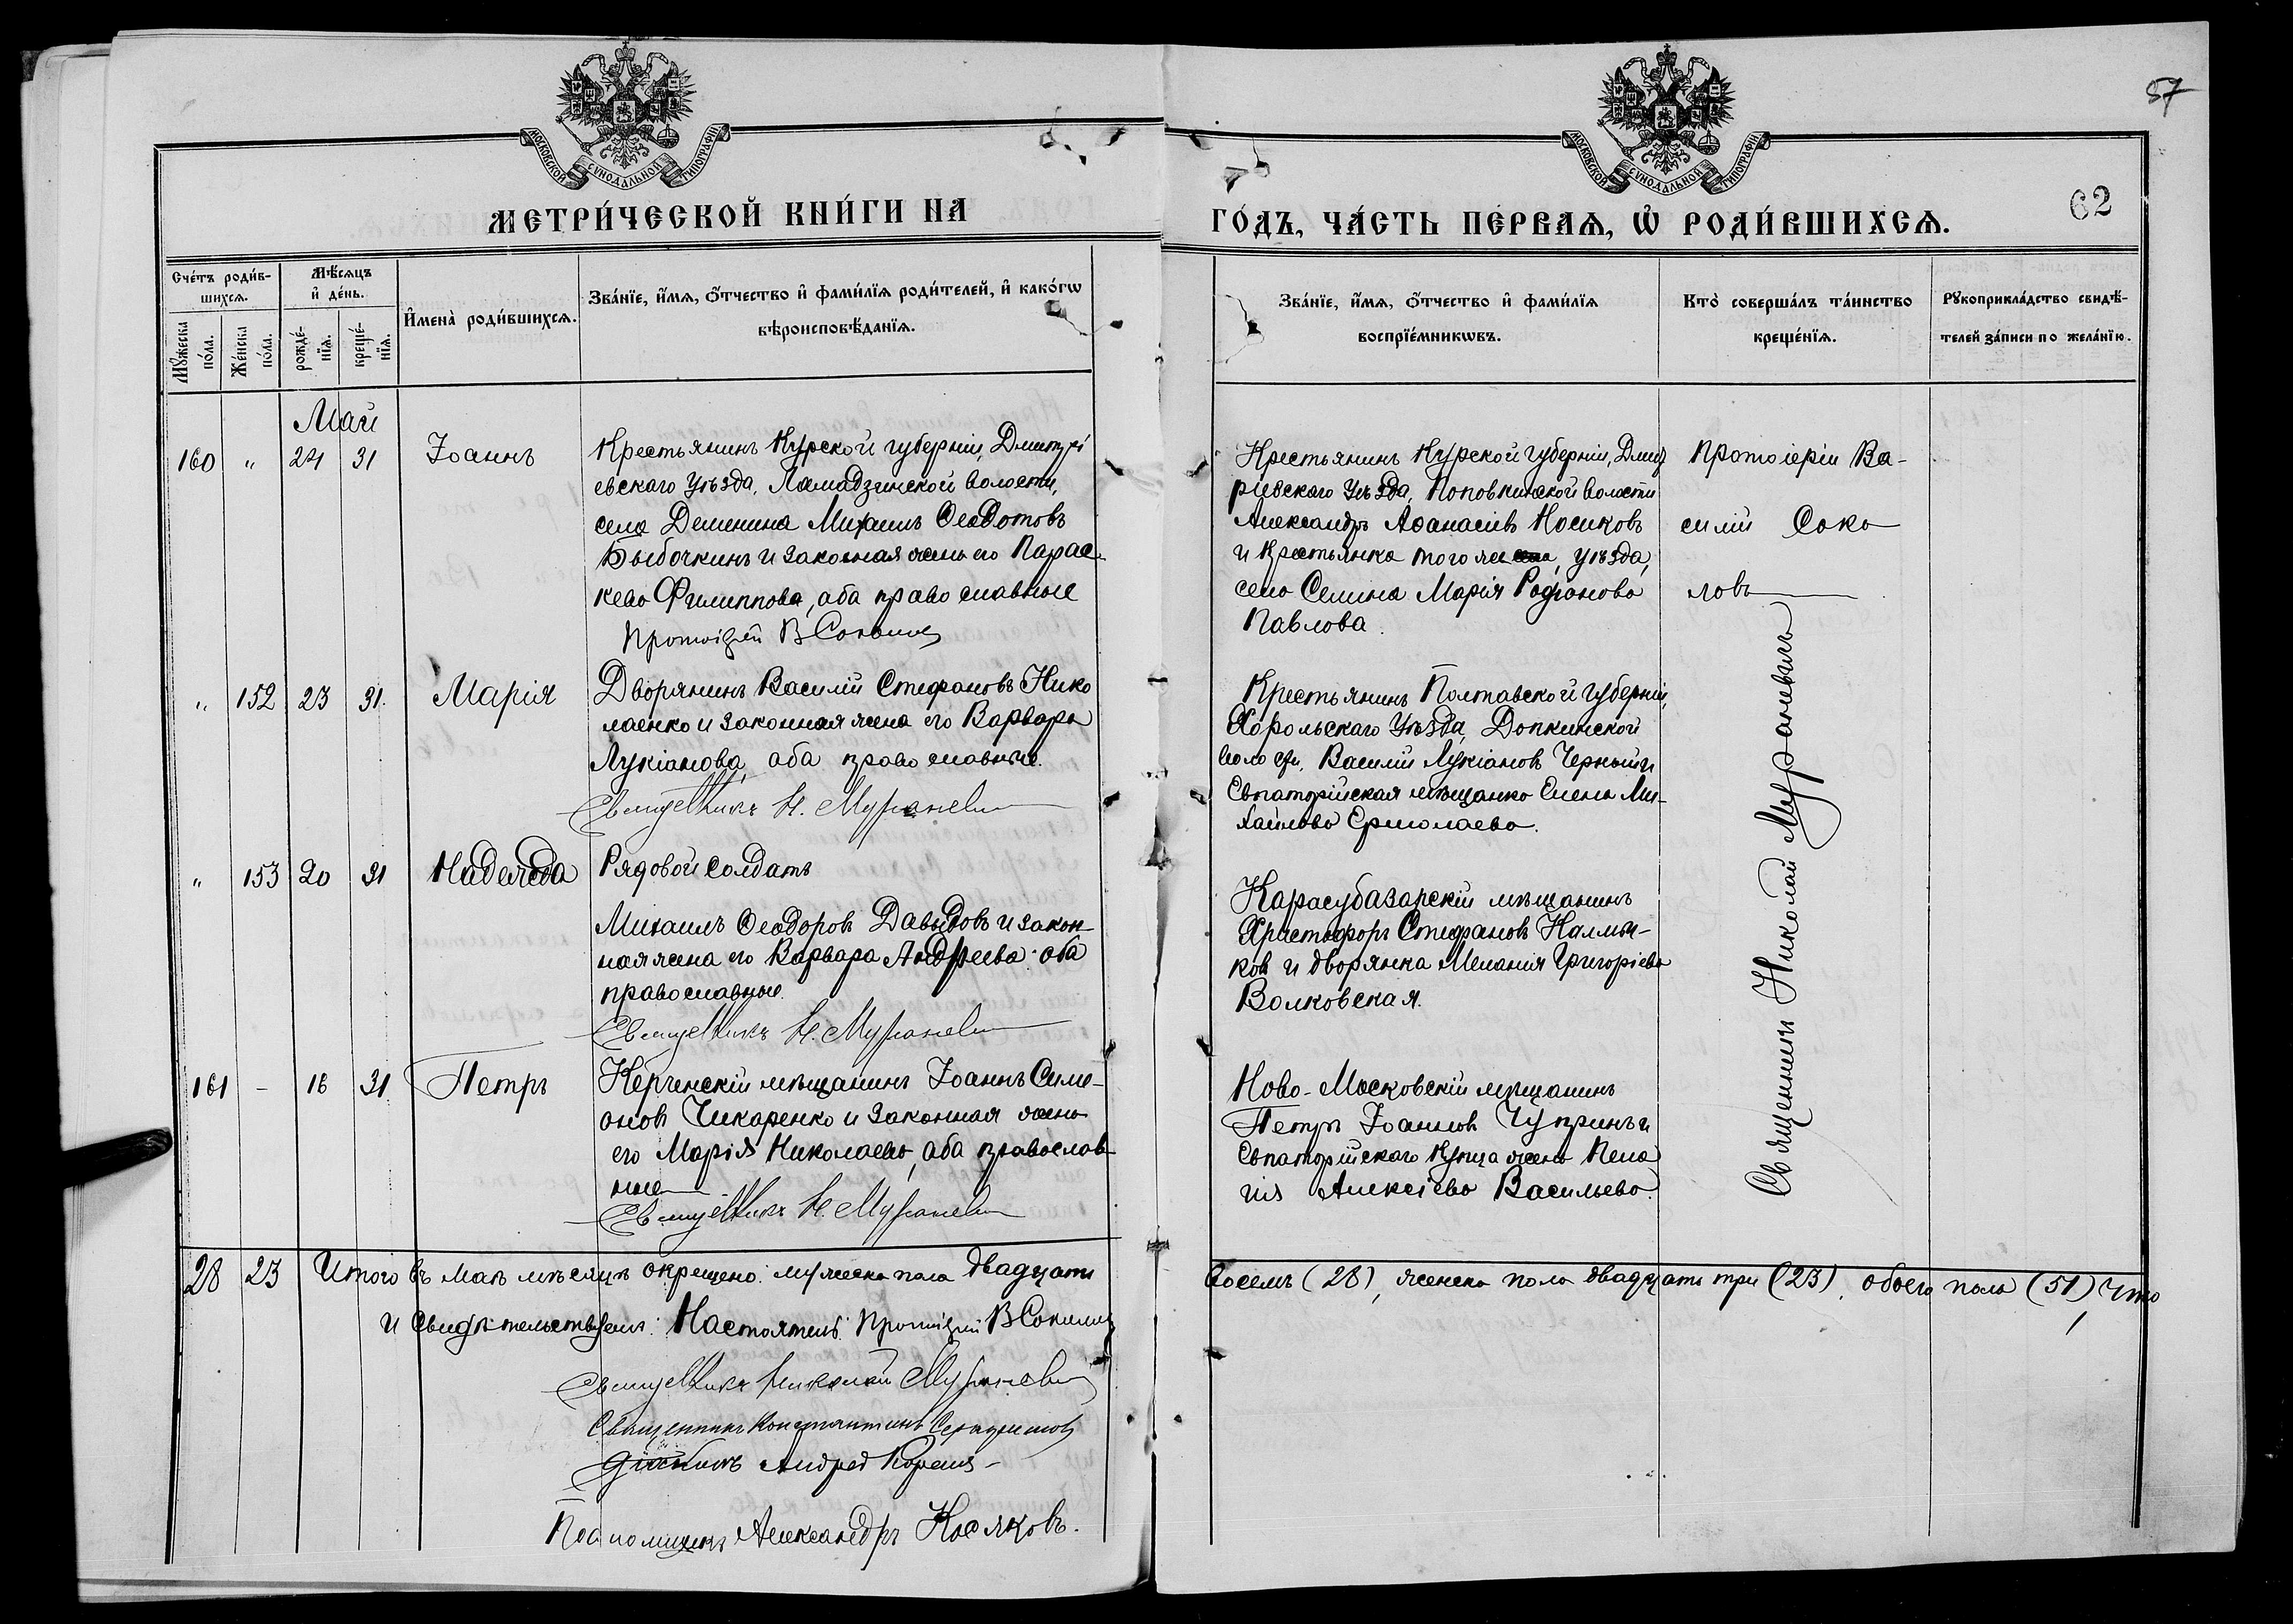 57
62
МОСКОВСКОЙ СѴНОДАЛЬНОЙ ТИПОГРАФІИ
МОСКОВСКОЙ СѴНОДАЛЬНОЙ ТИПОГРАФІИ
МЕТРИ́ЧЕСКОЙ КНИ́ГИ НА
ГО́ДЪ, ЧА́СТЬ ПЕ́РВАѦ, Ѡ҆ РОДИ́ВШИХСѦ.
Сче́тъ роди́в-
шихсѧ.
Мꙋ́жеска
по́ла.
Же́нска
по́ла.
Мѣ́сѧцъ
и҆ де́нь.
рожде́-
нїѧ.
креще́-
нїѧ.
И҆мена̀ роди́вшихсѧ.
Зва́нїе, и҆́мѧ, ѻ҆́тчество и҆ фами́лїѧ роди́телей, и҆ како́гѡ
вѣроисповѣ́данїѧ.
Зва́нїе, и҆́мѧ, ѻ҆́тчество и҆ фами́лїѧ
воспрїе́мникѡвъ.
Кто̀ соверша́лъ та́инство
креще́нїѧ.
Рꙋкоприкла́дство свидѣ́-
телей за́писи по жела́нїю.
Май
160 " 24 31 Іоаннъ
Крестьянинъ Курской губерніи, Дмитрі
евскаго уѣзда, волости,
села Деменина Михаилъ Ѳеодотовъ
Быбочкинъ и законная жена его Парас
кева Филиппова, оба православные
Протоіерей В Соколовъ
Крестьянинъ Курской губерніи, Дмит
ріевскаго уѣзда, Поповкинской волости
Александръ Аѳанасіевъ Носиковъ
и крестьянка того же уѣзда,
села Селина Марія Родіонова
Павлова.
Протоіерій Ва-
силій Соко
ловъ
" 152 23 31. Марія
Дворянинъ Василій Стефановъ Нико
лаенко и законная жена его Варвара
Лукіанова, оба православные.
Священникъ Н. Мураневичъ
Крестьянинъ Полтавской губерніи,
Хорольскаго уѣзда, Допкинской
волости, Василій Лукіановъ Черный и
Евпаторійская мѣщанка Елена Ми-
хайлова Ермолаева.
" 153 20 31 Надежда
Рядовой солдатъ
Михаилъ Ѳеодоровъ Давыдовъ и закон-
ная жена его Варвара Андреева оба
православные.
Священникъ Н. Мураневичъ
Карасубазарскій мѣщанинъ
Христофоръ Стефановъ Калмы-
ковъ и дворянка Меланія Григоріева
Волковская.
161 - 16 31 Петръ
Керченскій мѣщанинъ Іоаннъ Симе-
оновъ Чикаренко и законная жена
его Марія Николаева, оба православ-
ные
Священникъ Н. Мураневичъ
Ново-Московскій мѣщанинъ
Петръ Іоанновъ Чупринъ и
Евпаторійскаго купца жена Пела
гія Алексіева Васильева.
Священникъ Николай Мураневичъ
28 23 Итого въ маѣ мѣсяцѣ окрещено: мужеска пола двадцать
восемь (28), женска пола двадцать три (23), обоего пола (51), что
и свидѣтельствуемъ: Настоятель Протоіерей В Соколовъ
Священникъ Николай Мураневичъ
Священникъ Константинъ Серафимовъ
Діаконъ Андрей
Псаломщикъ Александръ Косяковъ.